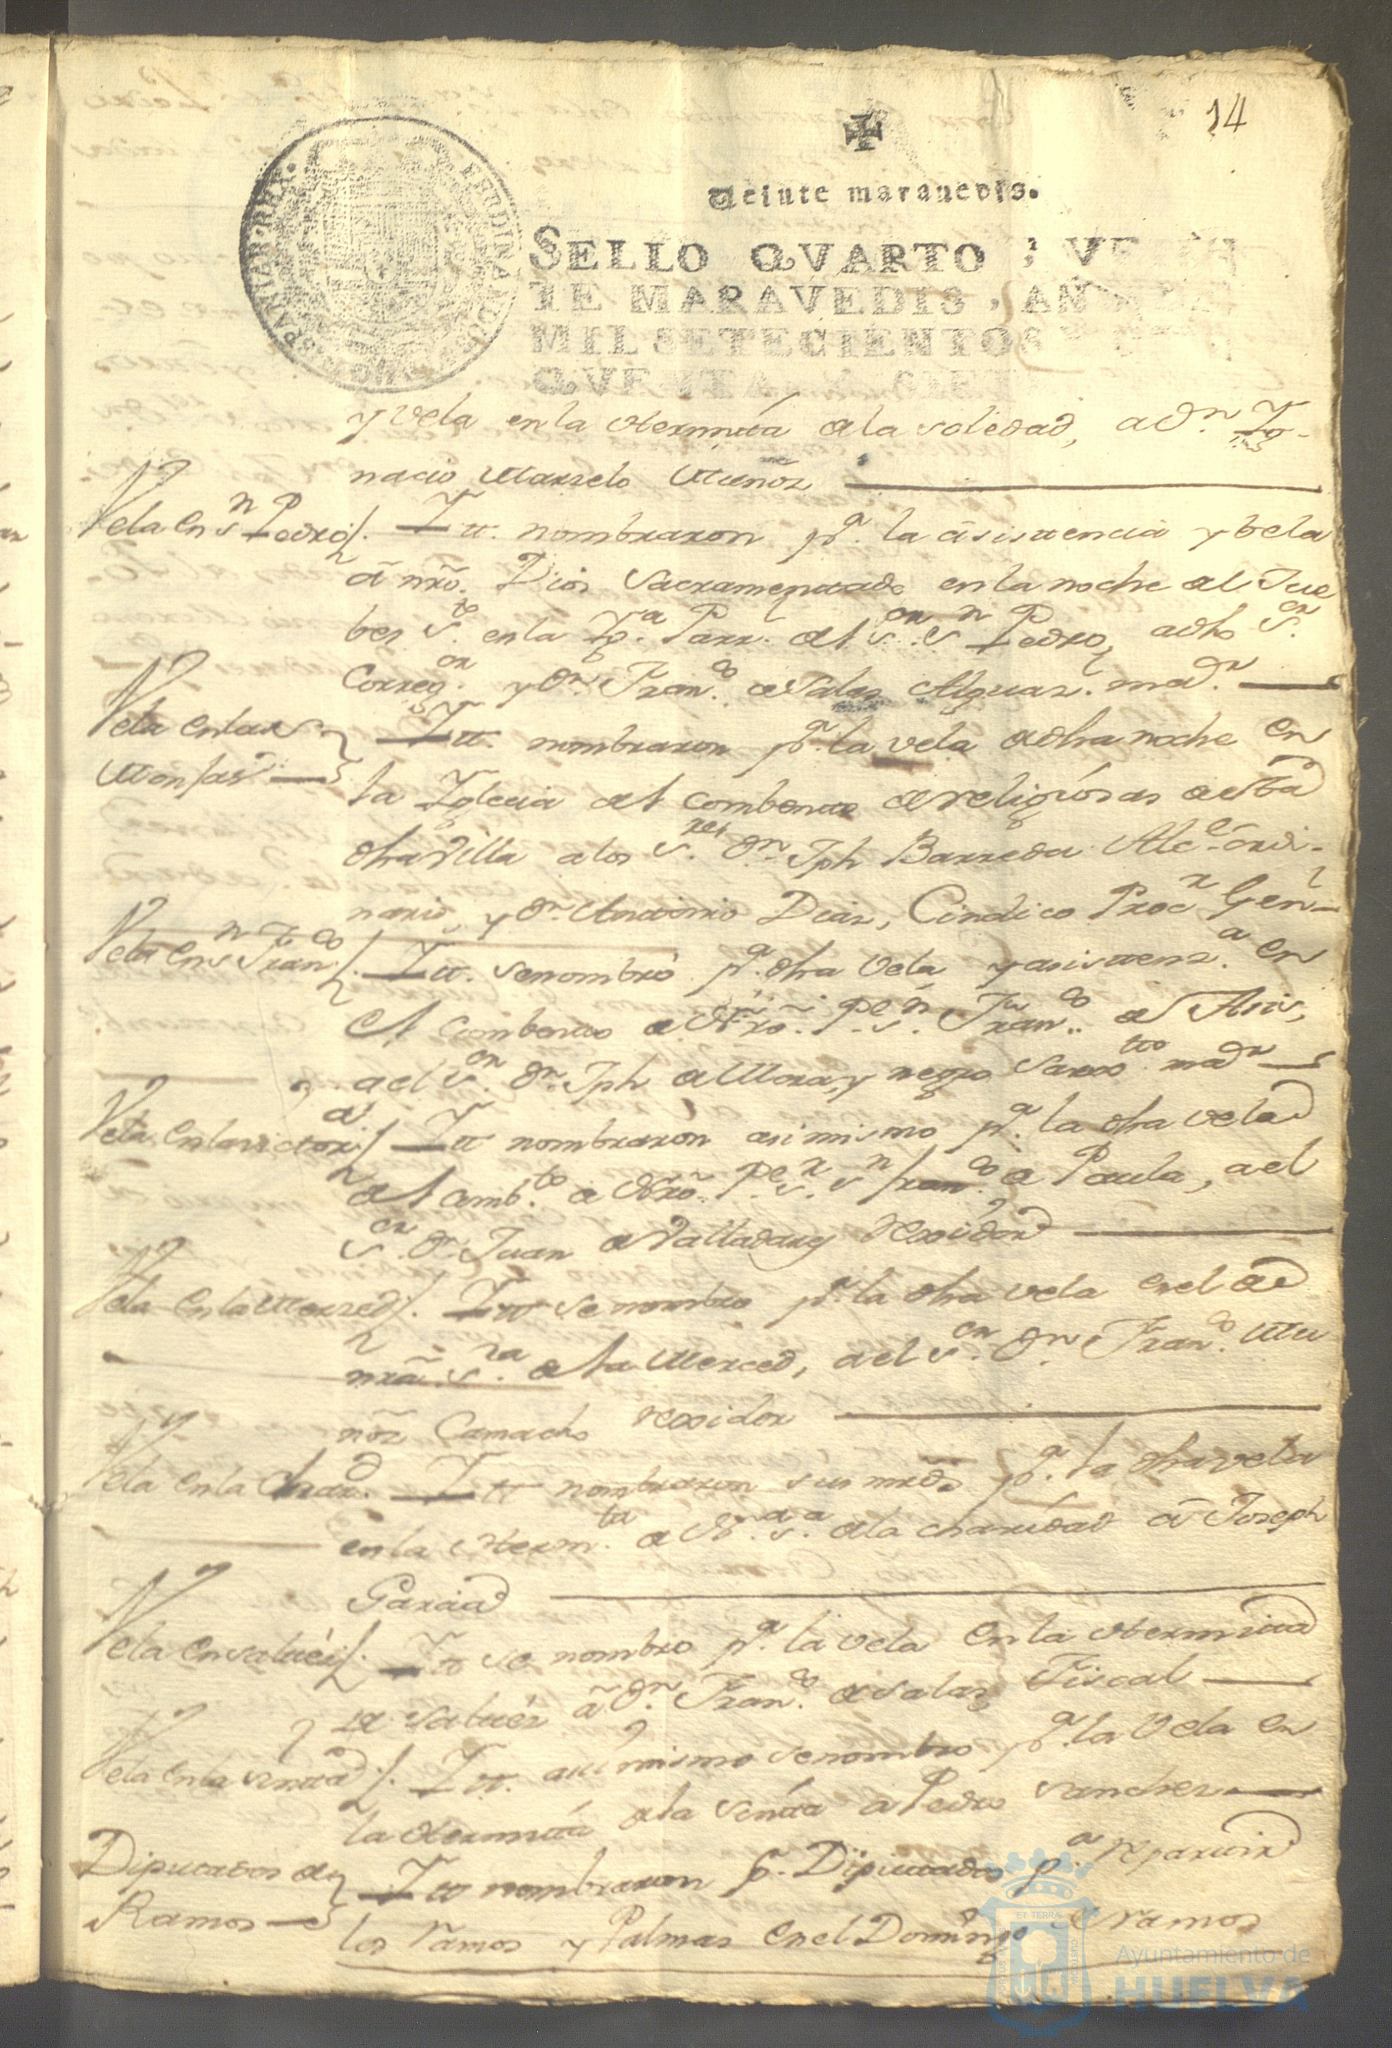 14
Veinte maravedis.
SELLO QVARTO, VEIN
TE MARAVEDIS, AÑO DE
MIL SETECIENTOS Y
QVENTA Y SIET
y Vela en la Hermita de la Soledad, a Dn. Ig-
nacio Marzelo Muñoz
Vela En Sn. Pedro. Itt. nombraron pa. la asistencia y bela
a nro. Dios Sacramentado en la noche del Jue
bes Sto. en la Iga. Parrl. del Sor. Sn Pedro, a dho Sor.
Corregor. y Dn. Franco. de Salas Alguazl. mar.
Vela en las Itt. nombraron pa. la vela de dha noche En
Monjas la Iglecia del combento de religiosas de esta
dha Villa a los Sres. Dn. Jph Barreda Alce. ordi-
nario, y Dn. Antonio Diaz, Cindico Procr Genl
Vela En Sn Franco. Itt. se nombró pa. dha Vela y asistenza. en
el combento de Nro. Pe. Sn. Franco. de Asis,
a el Sor. Dn. Jph de Mora y negro mar
Vela en la victora. Itt nombraron asimismo pa. la dha vela
del combto. de Nro. Pe. Sr. Sn Franco. de Paula, a el
Sor. Dn. Juan de Valladares rexidor
Vela en la Merzed. Itt se nombro pa. la dha vela en el de
nra. Sra. de la Merced, a el Sor. Dn. Franco. Mu
ñoz Camacho rexidor
Vela en la Charad. Itt nombraron sus mrds. pa. la dha vela
en la Hermta. de Na. Sa. de la charidad a Joseph
Garcia
Vela En saluci. Itt se nombro pa. la vela En la Hermita
de a Dn. Franco. de Salas Fiscal
Vela en la Itt. asimismo se nombro pa. la Vela en
la Hermita de la a Pedro Sanchez
Diputados de Itt nombraron pr. Diputados pa. repartir
Ramos los ramos y Palmas en el Domingo de Ramos
Ayuntamiento de
HUELVA